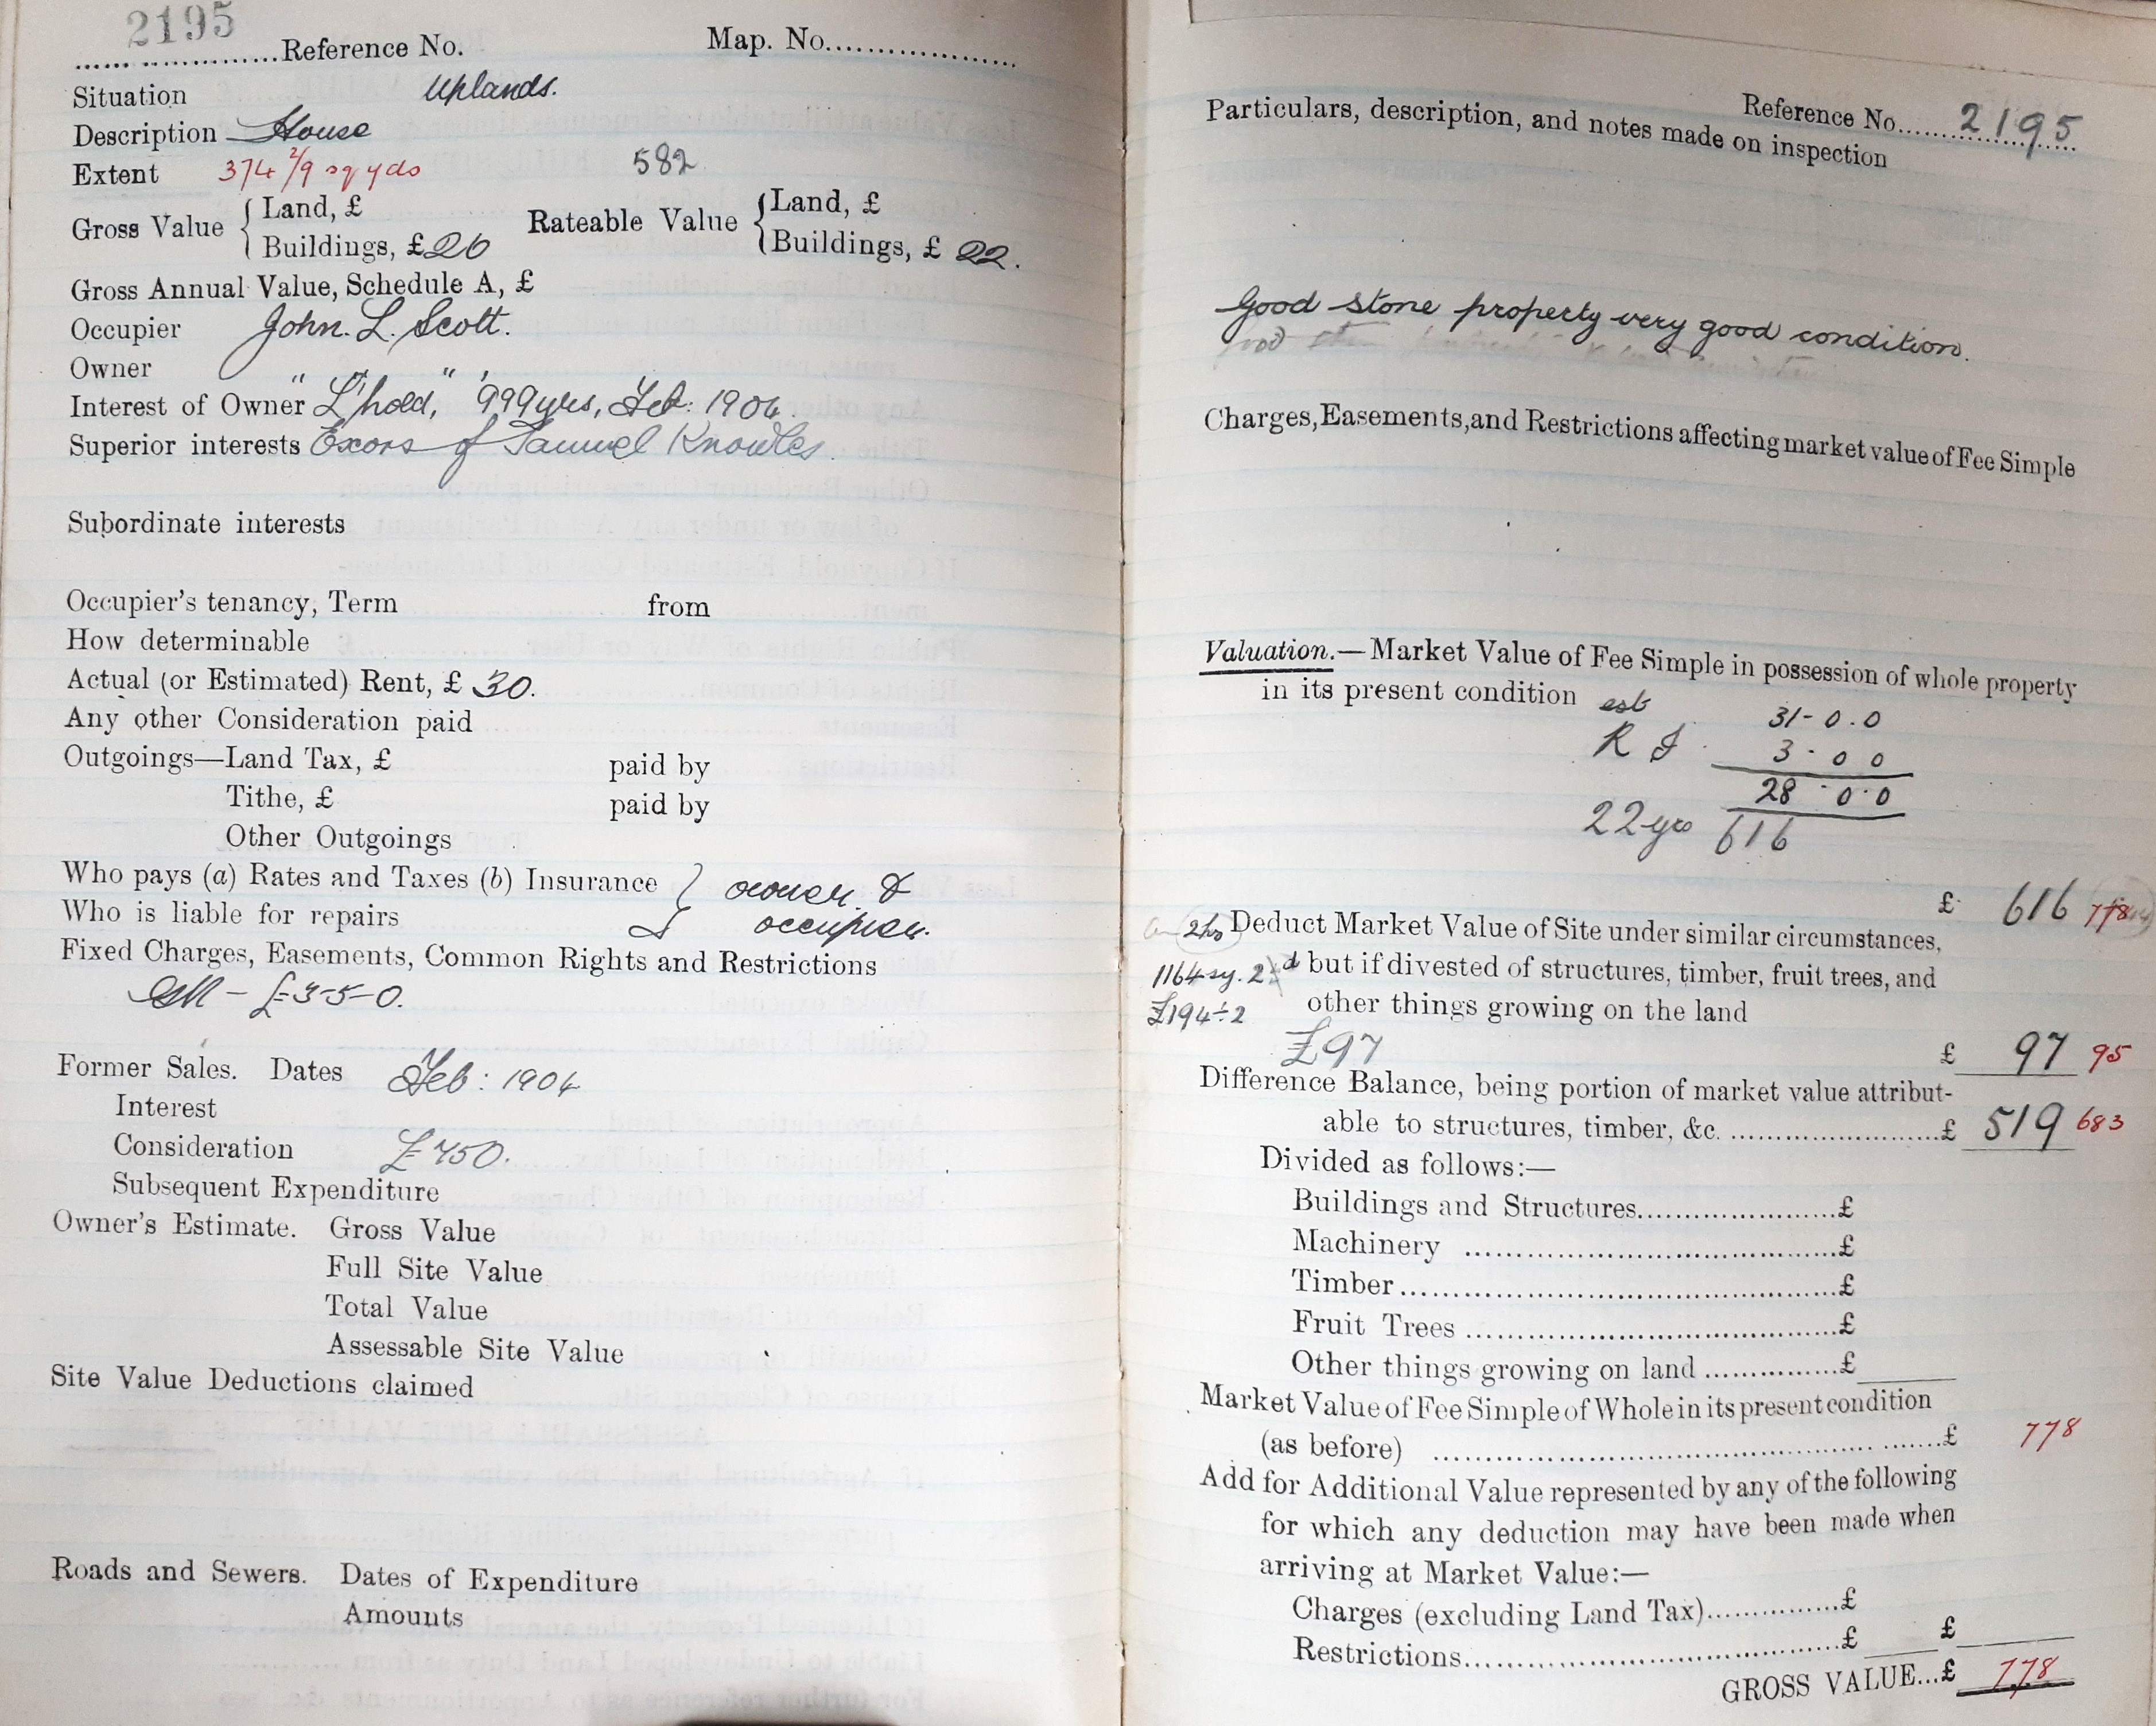 2195
Reference No. Map. No.
Situation Uplands.
Description House
Extent 374 2/9 sq yds 582
Gross Value { Land, £ Rateable Value { Land, £
Buildings, £ 26 Buildings, £ 22.
Gross Annual Value, Schedule A, £
Occupier John. L. Scott.
Owner " " "
Interest of Owner L'hold, 999 yrs, Feb: 1904.
Superior interests Excors of Samuel Knowles.
Subordinate interests
Occupier's tenancy, Term from
How determinable
Actual (or Estimated) Rent, £ 30.
Any other Consideration paid
Outgoings—Land Tax, £ paid by
Tithe, £ paid by
Other Outgoings
Who pays (a) Rates and Taxes (b) Insurance } owner &
Who is liable for repairs occupier.
Fixed Charges, Easements, Common Rights and Restrictions
£3-5-0.
Former Sales. Dates Feb: 1904
Interest
Consideration £450.
Subsequent Expenditure
Owner's Estimate. Gross Value
Full Site Value
Total Value
Assessable Site Value
Site Value Deductions claimed
Roads and Sewers. Dates of Expenditure
Amounts
Reference No. 2195
Particulars, description, and notes made on inspection
Good stone property very good condition.
Charges, Easements, and Restrictions affecting market value of Fee Simple
Valuation.—Market Value of Fee Simple in possession of whole property
in its present condition est 31-0.0
R I 3-0 0
28-0.0
22 yrs 616
£ 616 778
Deduct Market Value of Site under similar circumstances,
1164 sy. 2 d but if divested of structures, timber, fruit trees, and
£194÷2 other things growing on the land
£97 £ 97 95
Difference Balance, being portion of market value attribut-
able to structures, timber, &c. £ 519 683
Divided as follows:—
Buildings and Structures £
Machinery £
Timber £
Fruit Trees £
Other things growing on land £
Market Value of Fee Simple of Whole in its present condition
(as before) £ 778
Add for Additional Value represented by any of the following
for which any deduction may have been made when
arriving at Market Value:—
Charges (excluding Land Tax) £
Restrictions £ £
GROSS VALUE...£ 778